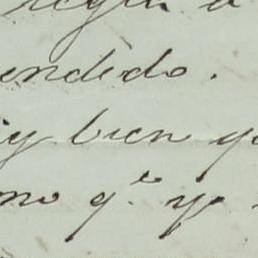 endido.
uy bien y
mo q.e yo